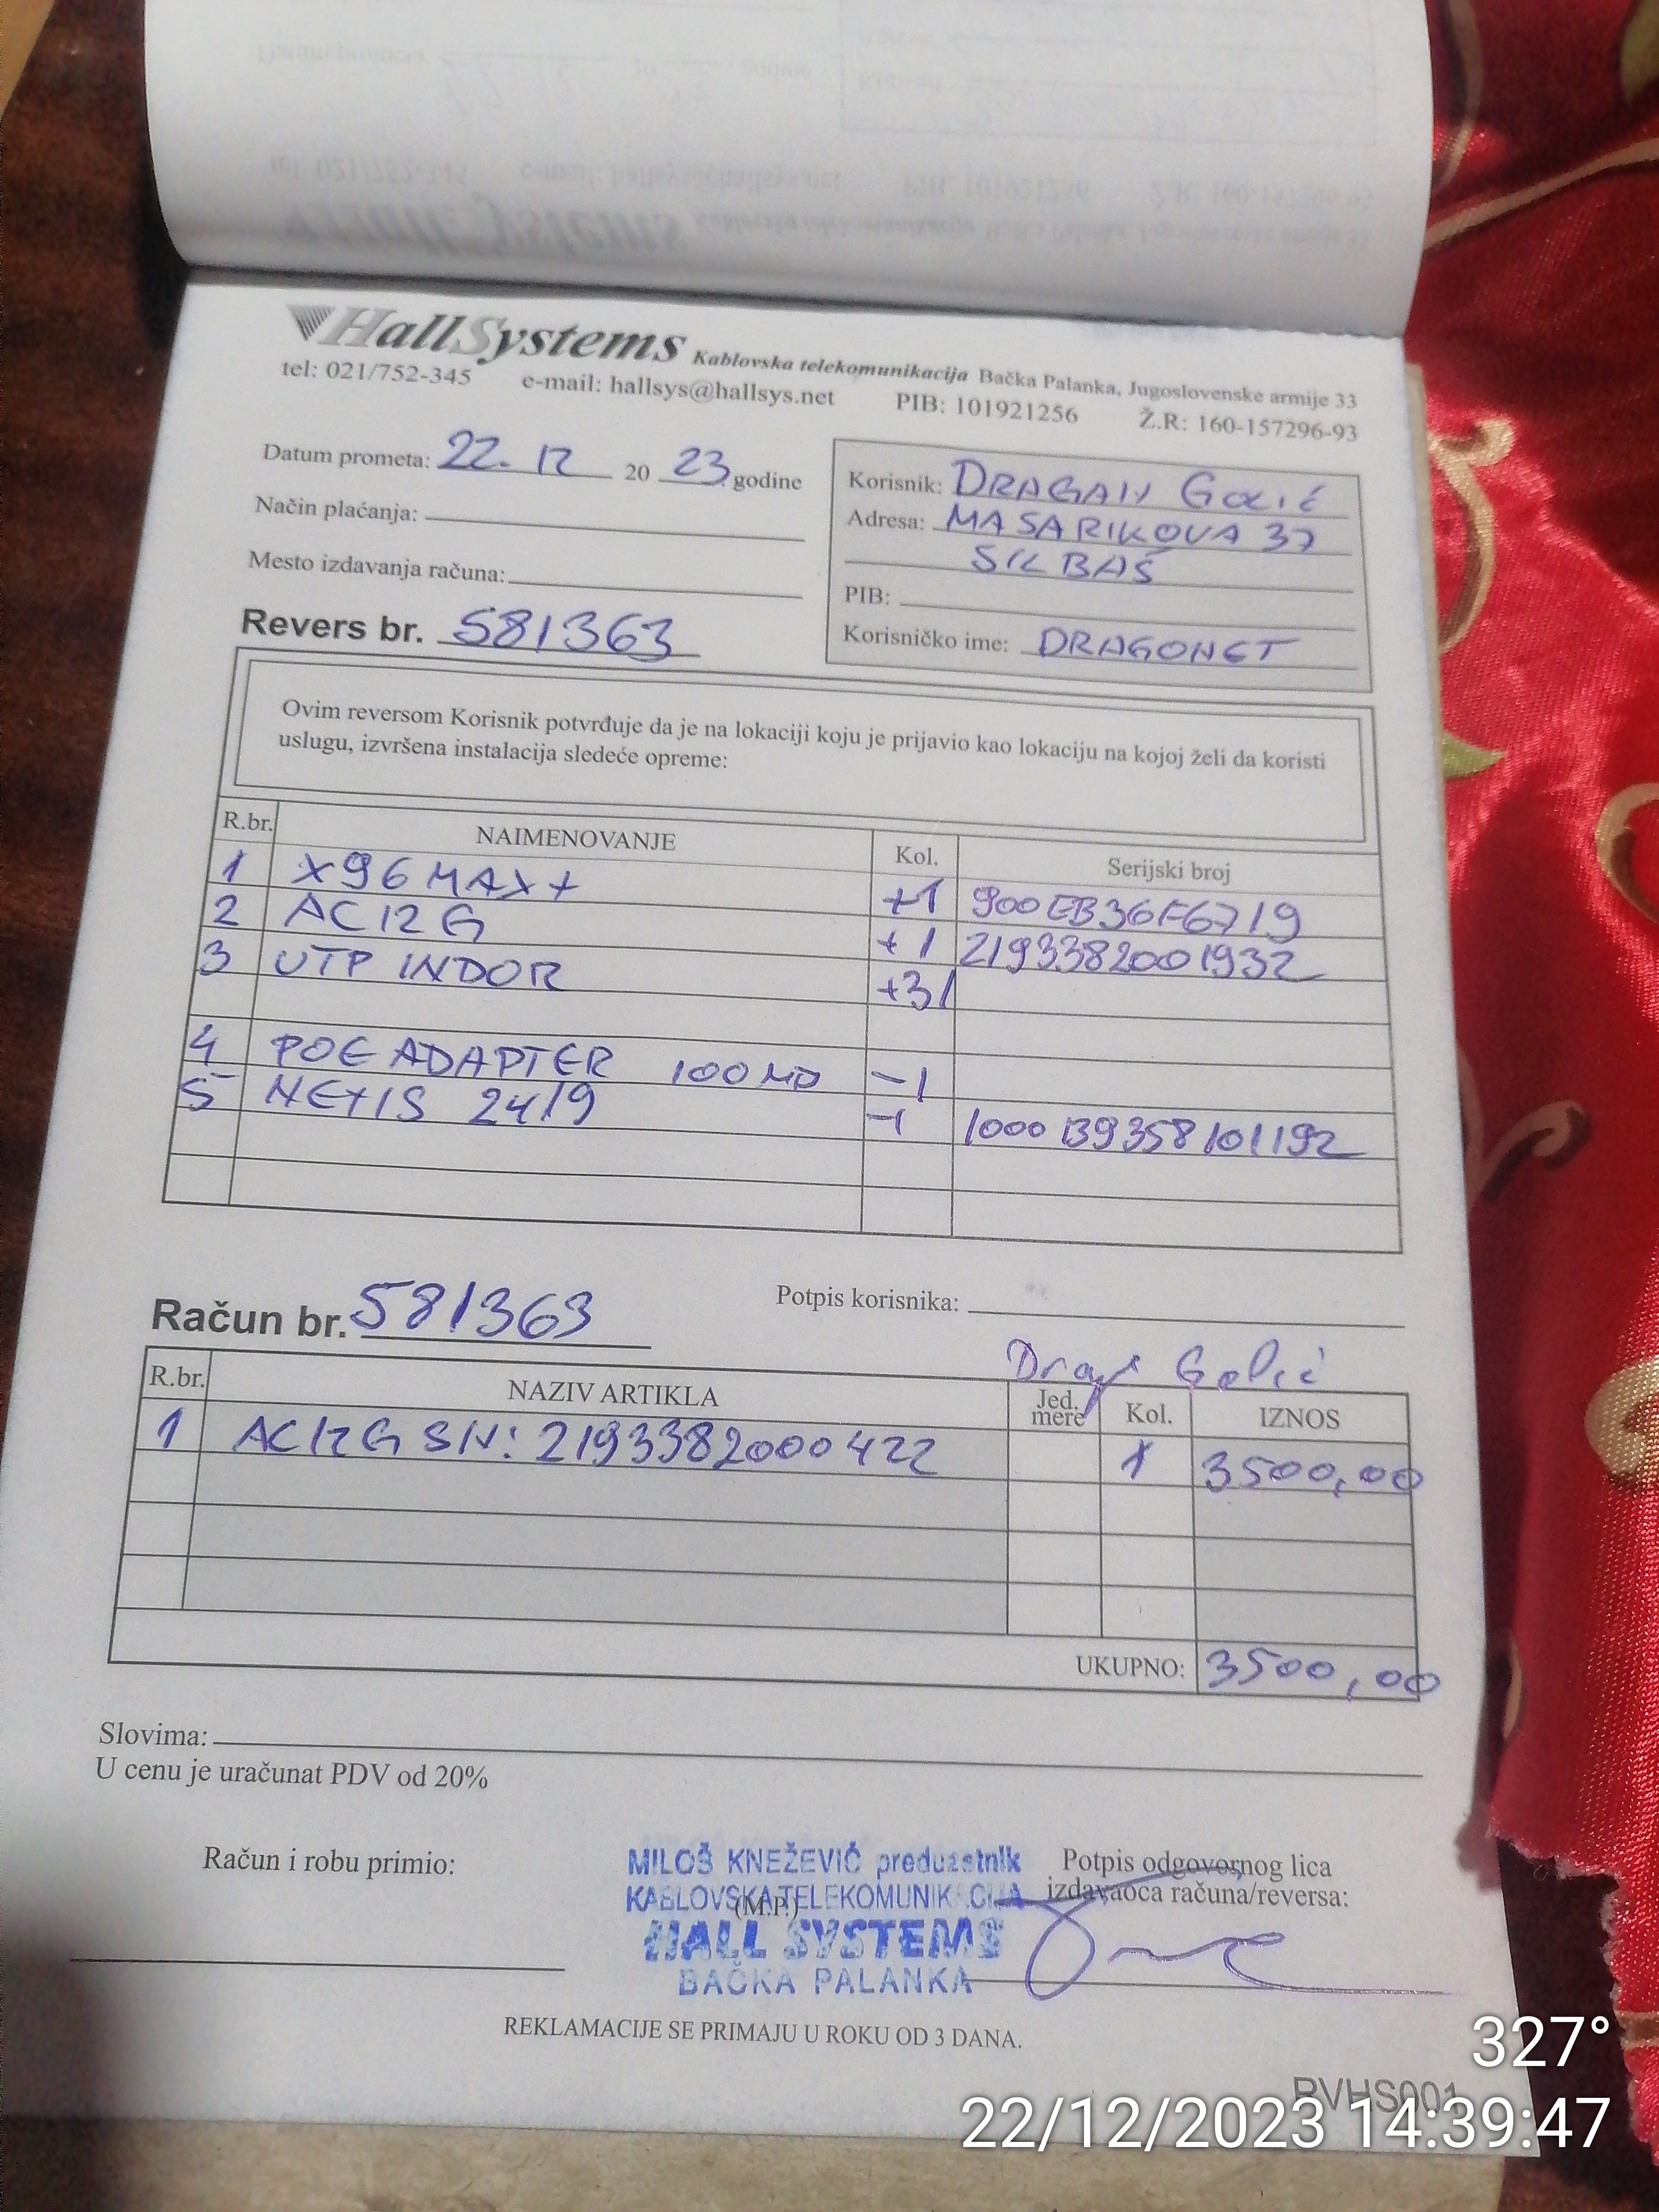 HallSystems Kablovska telekomunikacija Bačka Palanka, Jugoslovenske armije 33
tel: 021/752-345 e-mail: hallsys@hallsys.net PIB: 101921256 Ž.R: 160-157296-93
Datum prometa: 22. 12 20 23 godine
Način plaćanja:
Mesto izdavanja računa:
Revers br. 581363
Korisnik: DRAGAN GOLIĆ
Adresa: MASARIKOVA 37
SILBAŠ
PIB:
Korisničko ime: DRAGONET
Ovim reversom Korisnik potvrđuje da je na lokaciji koju je prijavio kao lokaciju na kojoj želi da koristi
uslugu, izvršena instalacija sledeće opreme:
R.br. NAIMENOVANJE Kol. Serijski broj
1 X96 MAX+ +1 900EB36F6719
2 AC12G +1 2193382001932
3 UTP INDOR +31
4 POE ADAPTER 100 -1
5 NETIS 2419 -1 1000B9358101192
Račun br. 581363 Potpis korisnika:
Golić
R.br. NAZIV ARTIKLA Jed. mere Kol. IZNOS
1 AC12G SN: 2193382000422 1 3500,00
UKUPNO: 3500,00
Slovima:
U cenu je uračunat PDV od 20%
Račun i robu primio:
MILOŠ KNEŽEVIĆ preduzetnik
KABLOVSKA TELEKOMUNIKACIJA
(M.P.)
HALL SYSTEMS
BAČKA PALANKA
Potpis odgovornog lica
izdavaoca računa/reversa:
REKLAMACIJE SE PRIMAJU U ROKU OD 3 DANA.
RVHS001
327°
22/12/2023 14:39:47